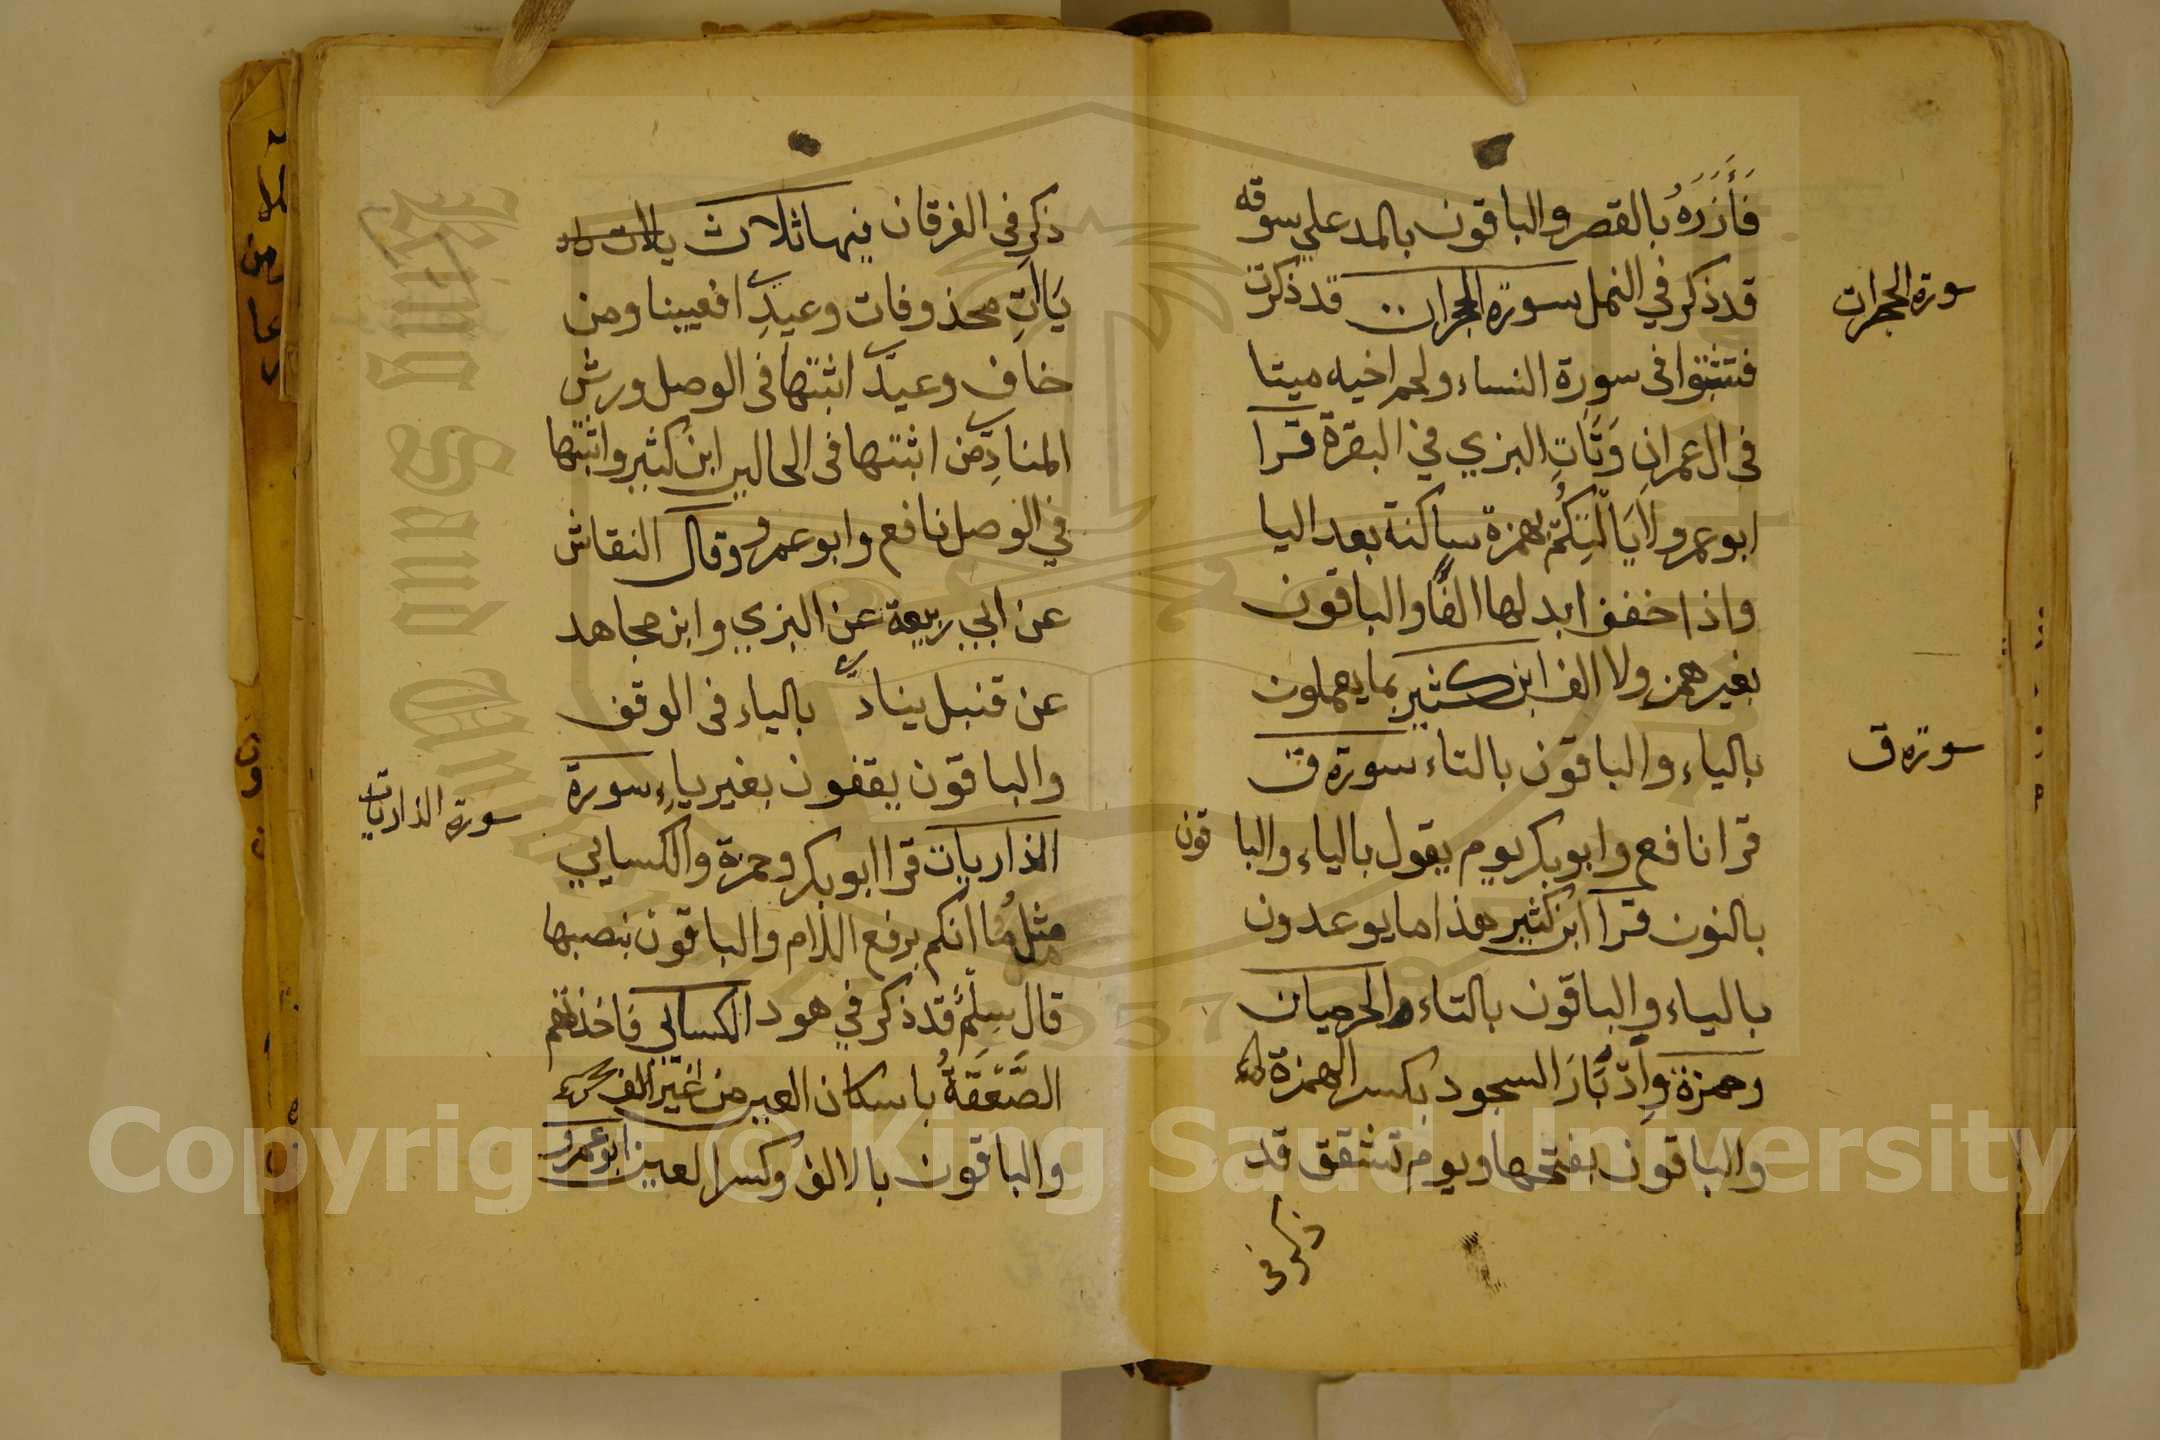 فَأَزَرَهُ بالقصر والباقون بالمد علي سوقه
قد ذكر في النمل سورة الحجرات قد ذكرت
سورة الحجرات
فتثبتوا فى سورة النساء ولحم اخيه ميتا
فى ال عمران وَتَاتِ البزي في البقرة قرا
ابو عمرو لا يَالِتْكُمْ بهمزة ساكنة بعد اليا
واذا خفف ابدلها الفًا والباقون
بغير همز ولا الف ابن كثير بما يعملون
بالياء والباقون بالتاء سورة ق
سورة ق
قرا نافع وابو بكر يوم يقول بالياء والباقون
بالنون قرا ابن كثير هذا ما يوعدون
بالياء والباقون بالتاء والحرميان
وحمزة وإدْبَارَ السجود بكسر الهمزة
والباقون بفتحها ويوم تشقق قد
ذكر فى
ذكر في الفرقان فيها ثلاث
يَاأتِ محذوفات وعيدِ افعيينا ومن
خاف وعيد اثبتها فى الوصل ورش
المنادِ من اثبتها فى الحالين ابن كثير واثبتها
في الوصل نافع وابو عمرو وقال النقاش
عن ابي ربيعة عن البزي وابن مجاهد
عن قنبل ينادي بالياء فى الوقف
والباقون يقفون بغير ياء سورة
سورة الذاريات
الذاريات قرا ابو بكر وحمزة والكسايي
مثلُ مَا انكم برفع اللام والباقون بنصبها
قال سِلْمٌ قد ذكر في هود الكسايي فاخذتهم
الصَّعْقَةُ باسكان العين من غير الف
والباقون بالالف وكسر العين ابو عمرو
King Saud University
1957
Copyright © King Saud University